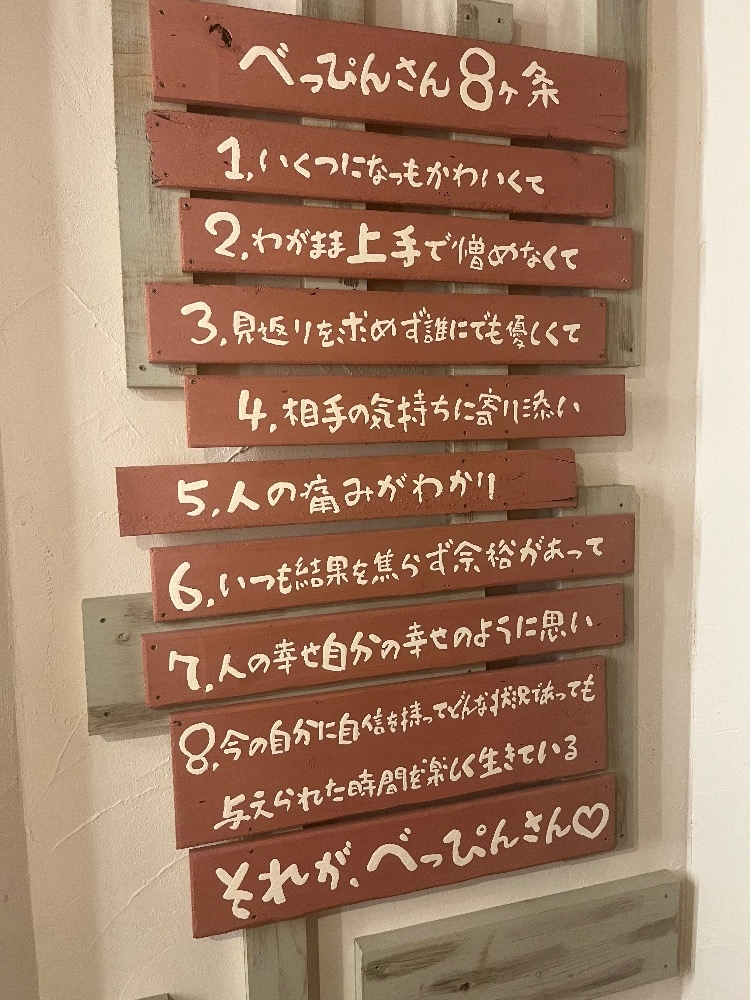 べっぴんさん8ヶ条
1.いくつになってもかわいくて
2.わがまま上手で憎めなくて
3.見返りを求めず誰にでも優しくて
4.相手の気持ちに寄り添い
5.人の痛みがわかり
6.いつも結果を焦らず余裕があって
7.人の幸せ自分の幸せのように思い
8.今の自分に自信を持ってどんな状況であっても
与えられた時間を楽しく生きている
それが、べっぴんさん♡